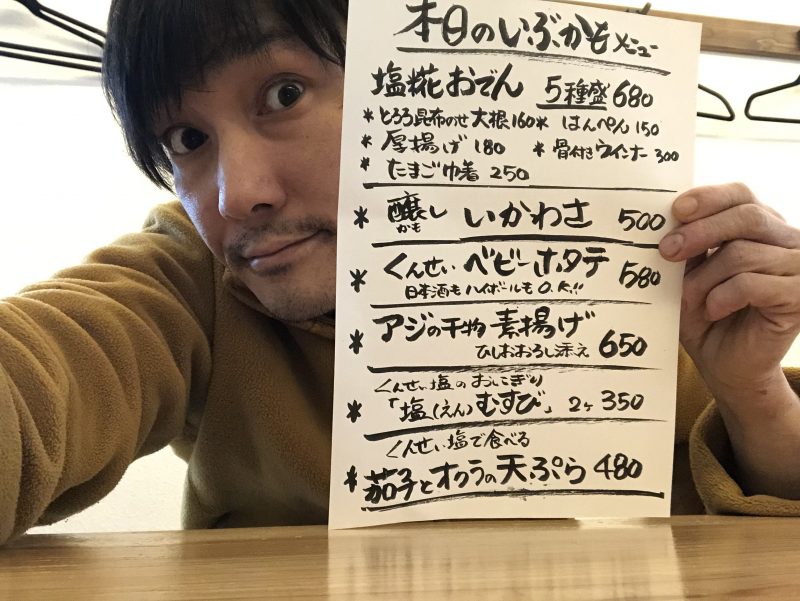 本日のいぶかもメニュー
塩糀おでん 5種盛 680
*とろろ昆布のせ大根160 *はんぺん150
*厚揚げ180 *骨付きウインナー300
*たまご巾着250
*醸し いかわさ 500
かも
*くんせいベビーホタテ 580
日本酒もハイボールもO.K!!
*アジの干物 素揚げ 650
ひしおおろし添え
くんせい塩のおにぎり
*「塩(えん)むすび」2ヶ350
くんせい塩で食べる
*茄子とオクラの天ぷら480